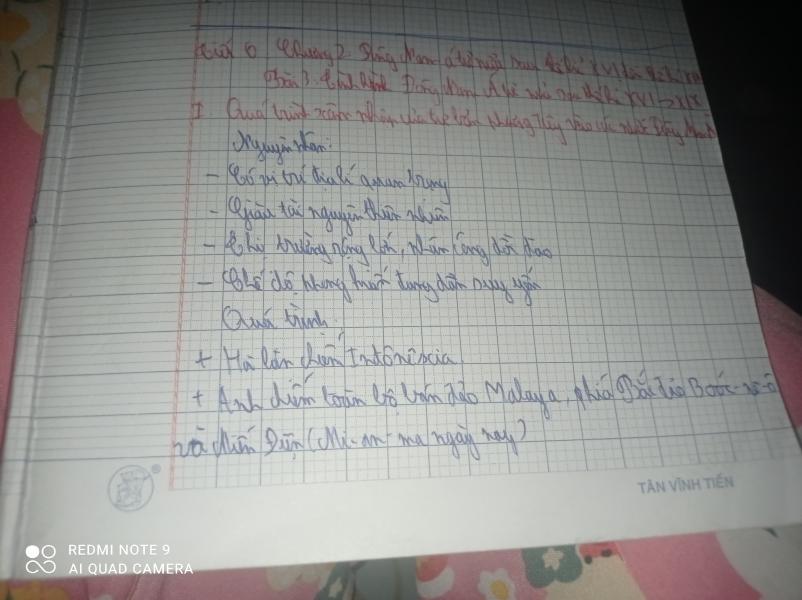 Tiết 6 Chương 2 Đông Nam Á từ nửa sau thế kỉ XVI đến thế kỉ XIX
Bài 3. Tình hình Đông Nam Á từ nửa sau thế kỉ XVI -> XIX
I. Quá trình xâm nhập của tư bản phương Tây vào các nước Đông Nam Á
Nguyên nhân:
- Có vị trí địa lí quan trọng
- Giàu tài nguyên thiên nhiên
- Thị trường rộng lớn, nhân công dồi dào
- Chế độ phong kiến đang dần suy yếu
Quá trình
+ Hà lan chiếm Intônêxia
+ Anh chiếm toàn bộ bán đảo Malaya, phía Bắc đảo Boóc-nê-ô
và Miến Điện (Mi-an-ma ngày nay)
TÂN VĨNH TIẾN
REDMI NOTE 9
AI QUAD CAMERA